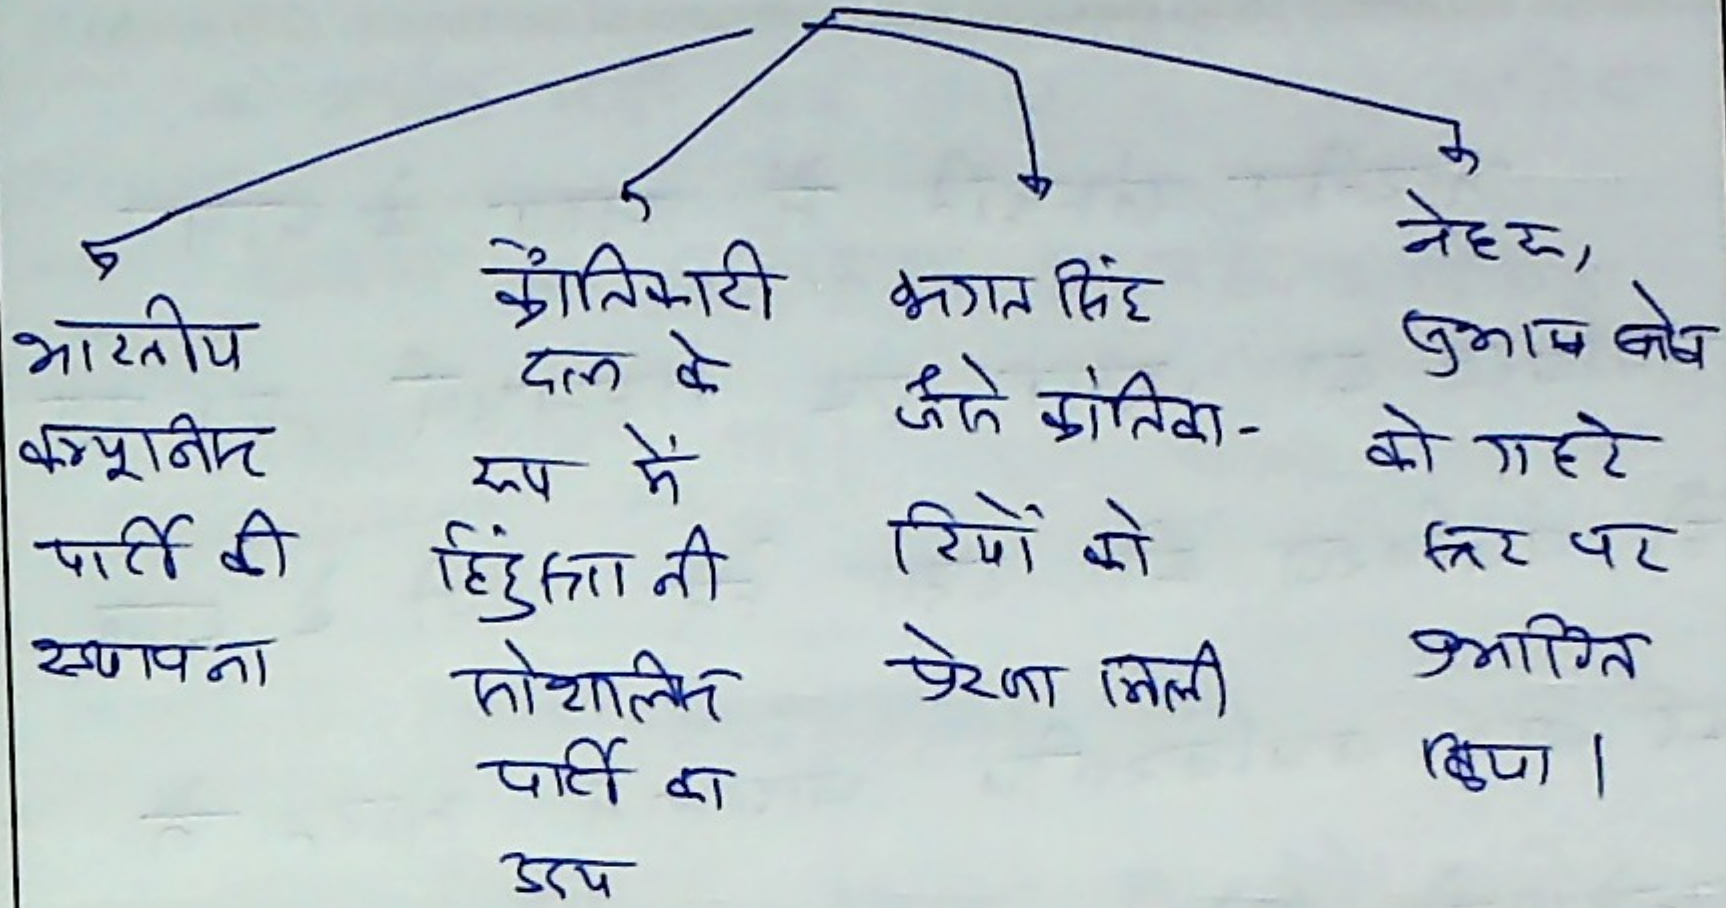 भारतीय
कम्यूनिस्ट
पार्टी की
स्थापना
क्रांतिकारी
दल के
रूप में
हिंदुस्तानी
सोशलिस्ट
पार्टी का
उदय
भगत सिंह
जैसे क्रांतिका-
रियों को
प्रेरणा मिली
नेहरू,
सुभाष बोस
को गहरे
स्तर पर
प्रभावित
किया।